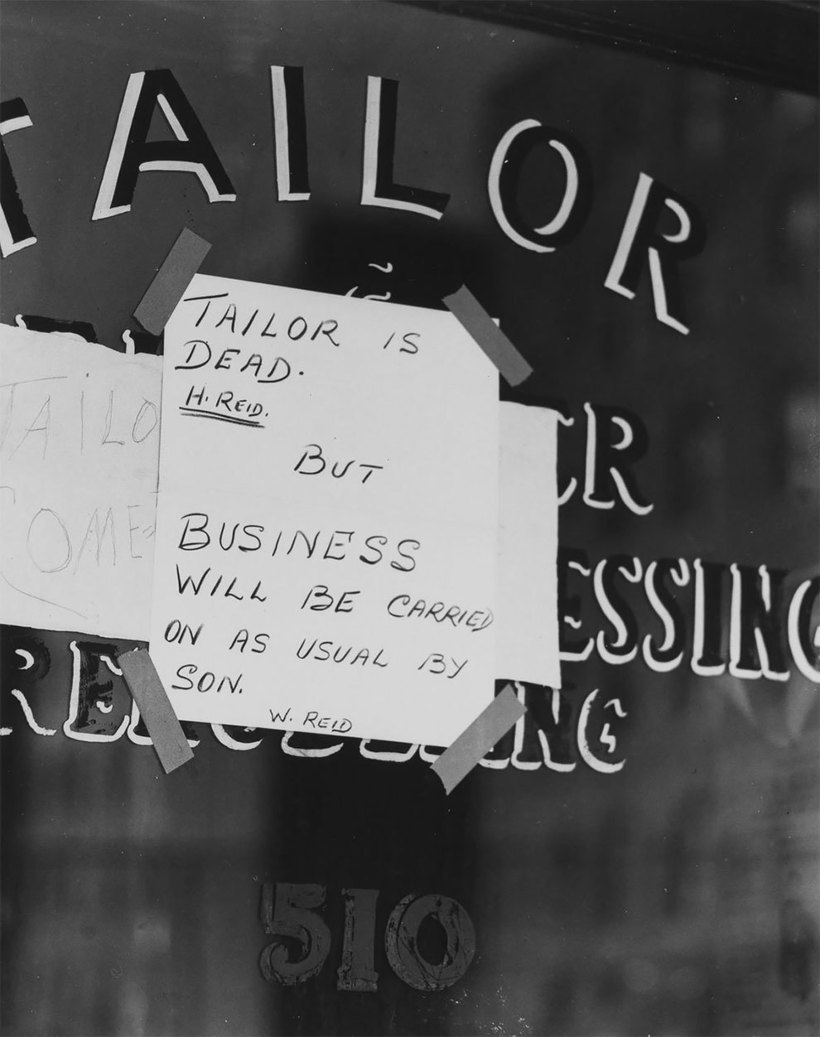 TAILOR
&
TAILOR IS
DEAD.
H. REID.
BUT
BUSINESS
WILL BE CARRIED
ON AS USUAL BY
SON.
W. REID
TAILO
COME
ER
ESSING
RE
ING
510